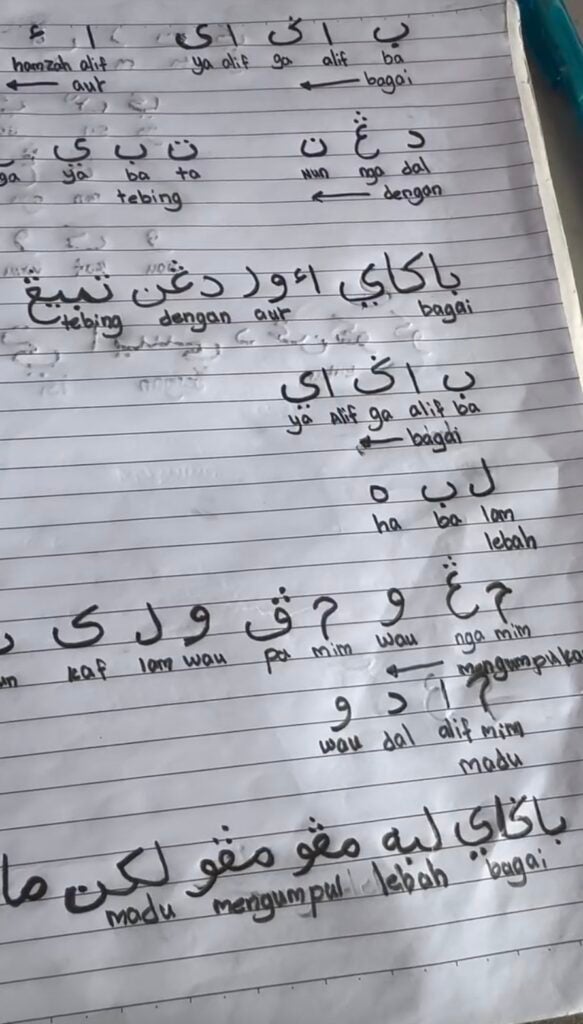 ب ا ݢ ا ي ا ء
hamzah alif ya alif ga alif ba
aur bagai
د ڠ ن ت ب ي
ga ya ba ta nun nga dal
tebing dengan
باكاي اءور دڠن تبيڠ
tebing dengan aur bagai
ب ا ݢ ا ي
ya alif ga alif ba
bagai
ل ب ه
ha ba lam
lebah
م ڠ و م ڤ و ل ک
kaf lam wau pa mim wau nga mim
mengumpulka
م ا د و
wau dal alif mim
madu
باݢاي لبه مڠو مڤو لكن ما
madu mengumpul lebah bagai